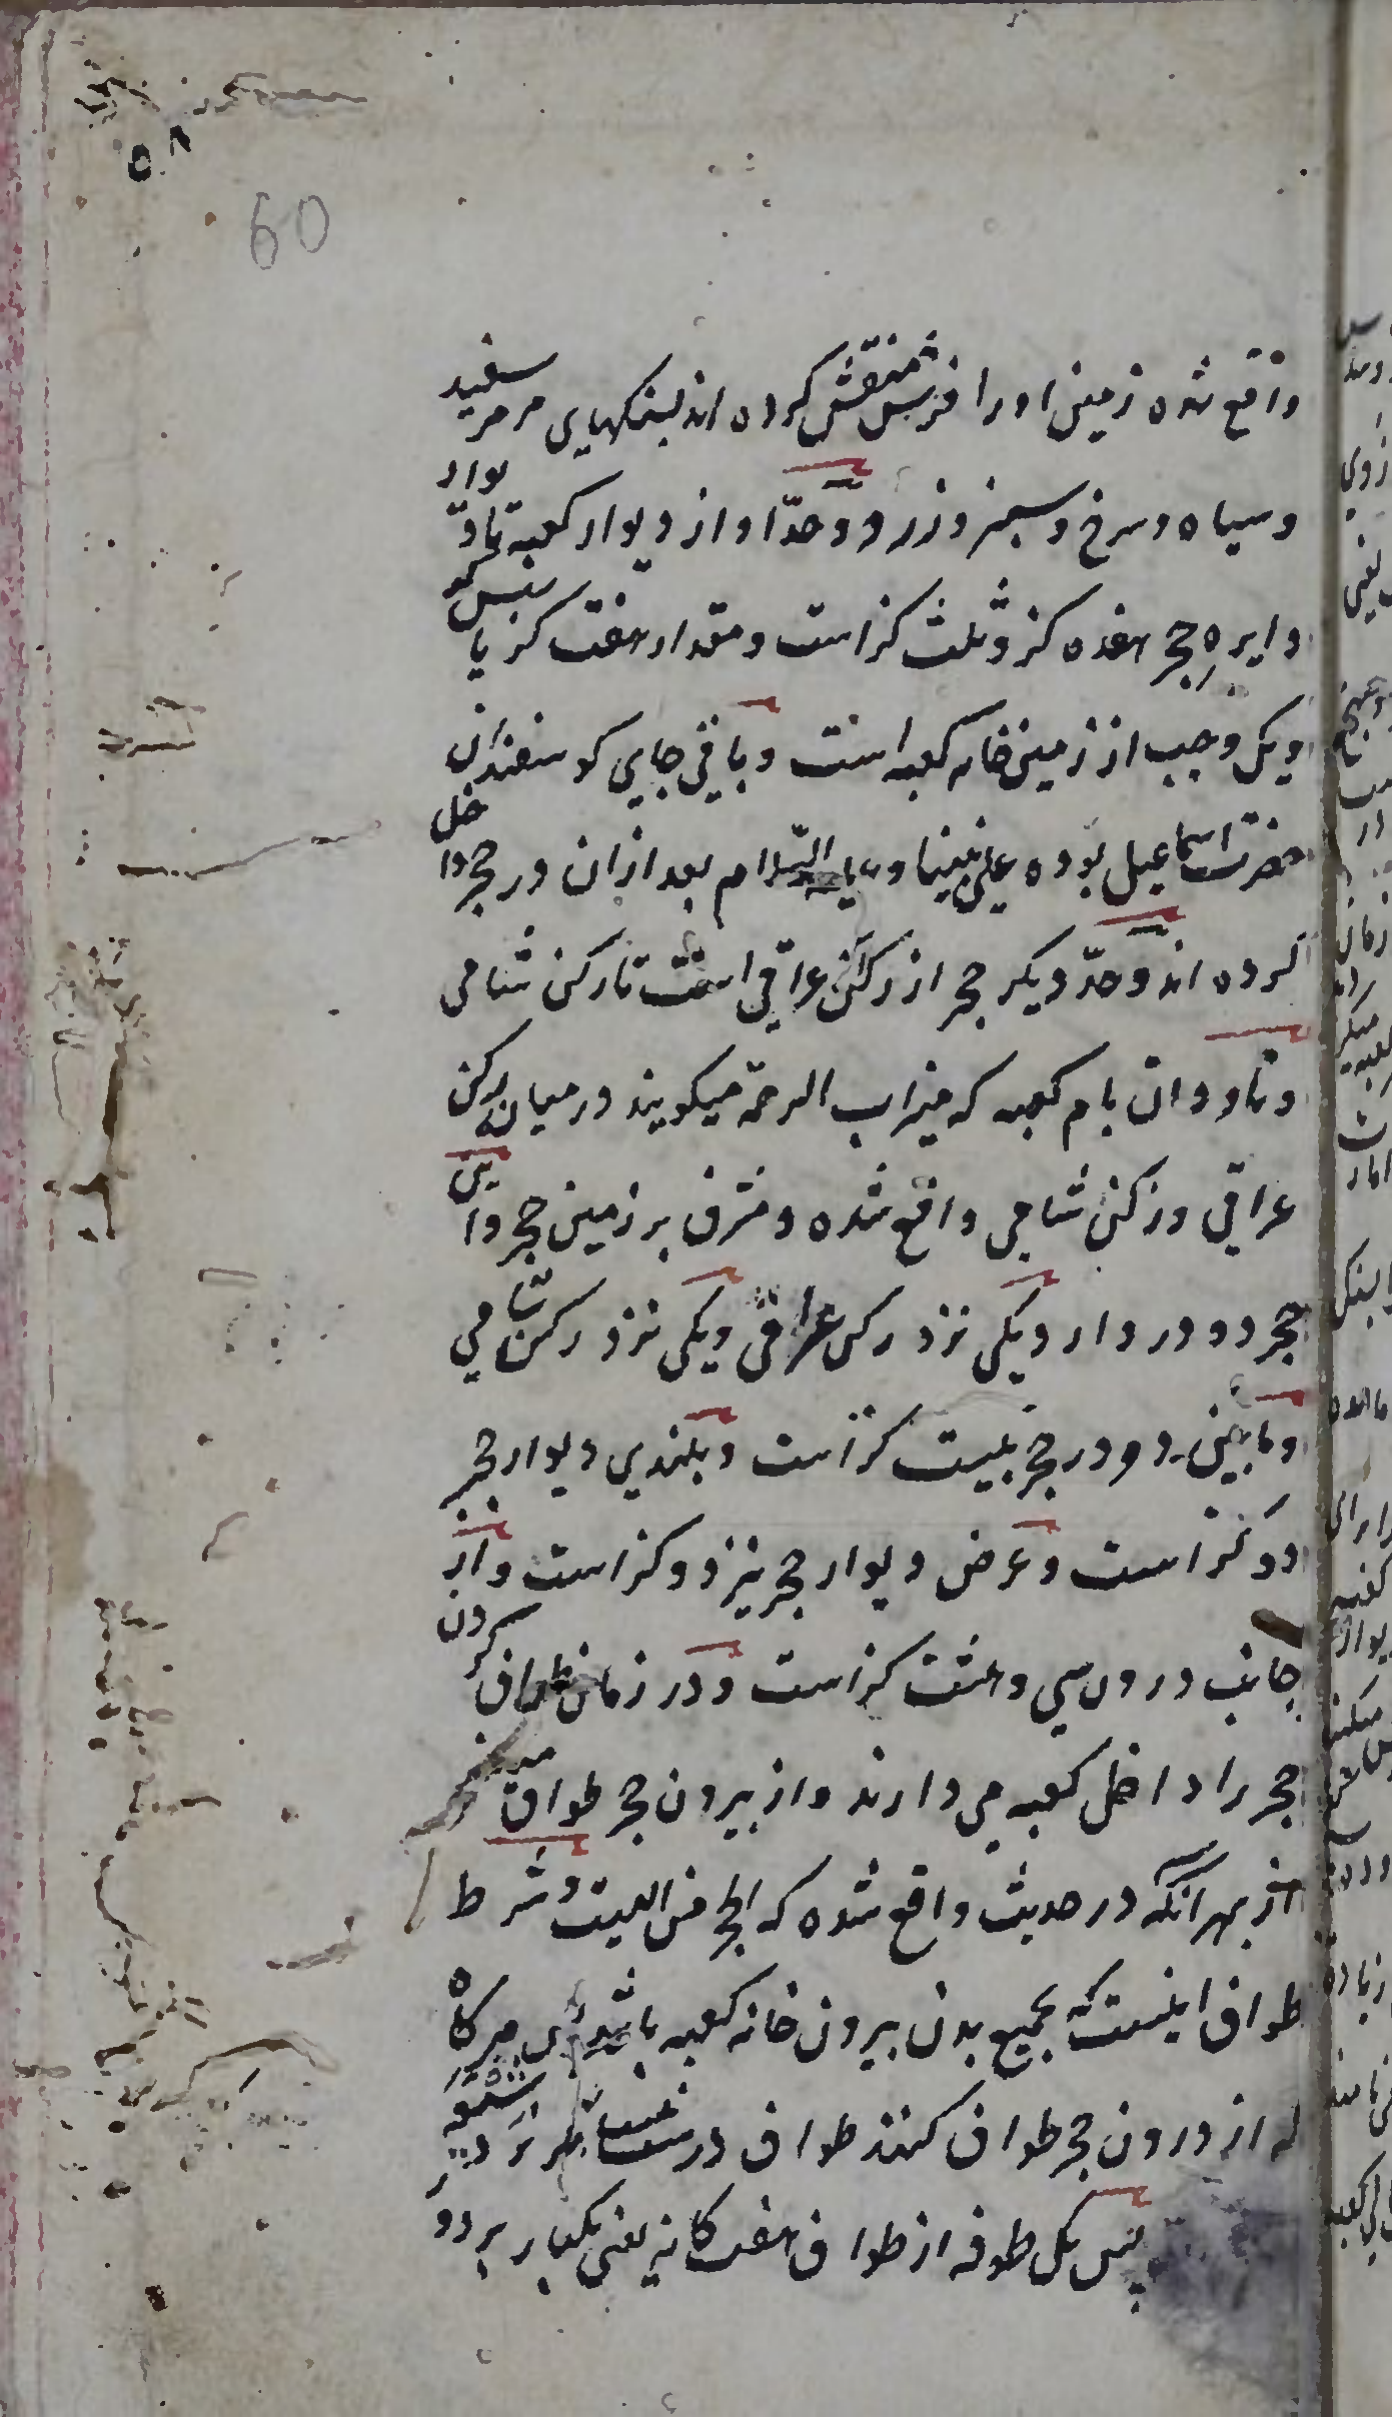 ۵۸
60
واقع شده زمین اورا فرش منقش کرده اند بسنکهای مرمر سفید
و سیاه و سرخ و سبز و زرد و حدّ او از دیوار کعبه تا دیوار
دایرهٔ حجر هفده کز و ثلث کز است و مقدار هفت کز یا شش کز
و یک وجب از زمین خانه کعبه است و باقی جای کوسفندان
حضرت اسماعیل بوده علی نبینا و علیه السّلام بعد ازان در حجر داخل
کرده اند و حدّ دیکر حجر از رکن عراقی است تا رکن شامی
و ناودان بام کعبه که میزاب الرحمة میکویند درمیان رکن
عراقی و رکن شامی واقع شده و مشرف بر زمین حجر و این
حجر دو در دارد یکی نزد رکن عراقی و یکی نزد رکن شامی
و مابین دو در حجر بیست کز است و بلندی دیوار حجر
دو کز است و عرض دیوار حجر نیز دو کز است و از
جانب درون سی و هشت کز است و در زمان طواف کردن
حجر را داخل کعبه می دارند و از بیرون حجر طواف میکنند
از بهر آنکه در حدیث واقع شده که الحجر من البیت و شرط
طواف اینست که بجمیع بدن بیرون خانه کعبه باشد پس هرکاه
که از درون حجر طواف کنند طواف درست نباشد
پس یک طوفه از طواف هفت کانه یعنی یکبار بر دور